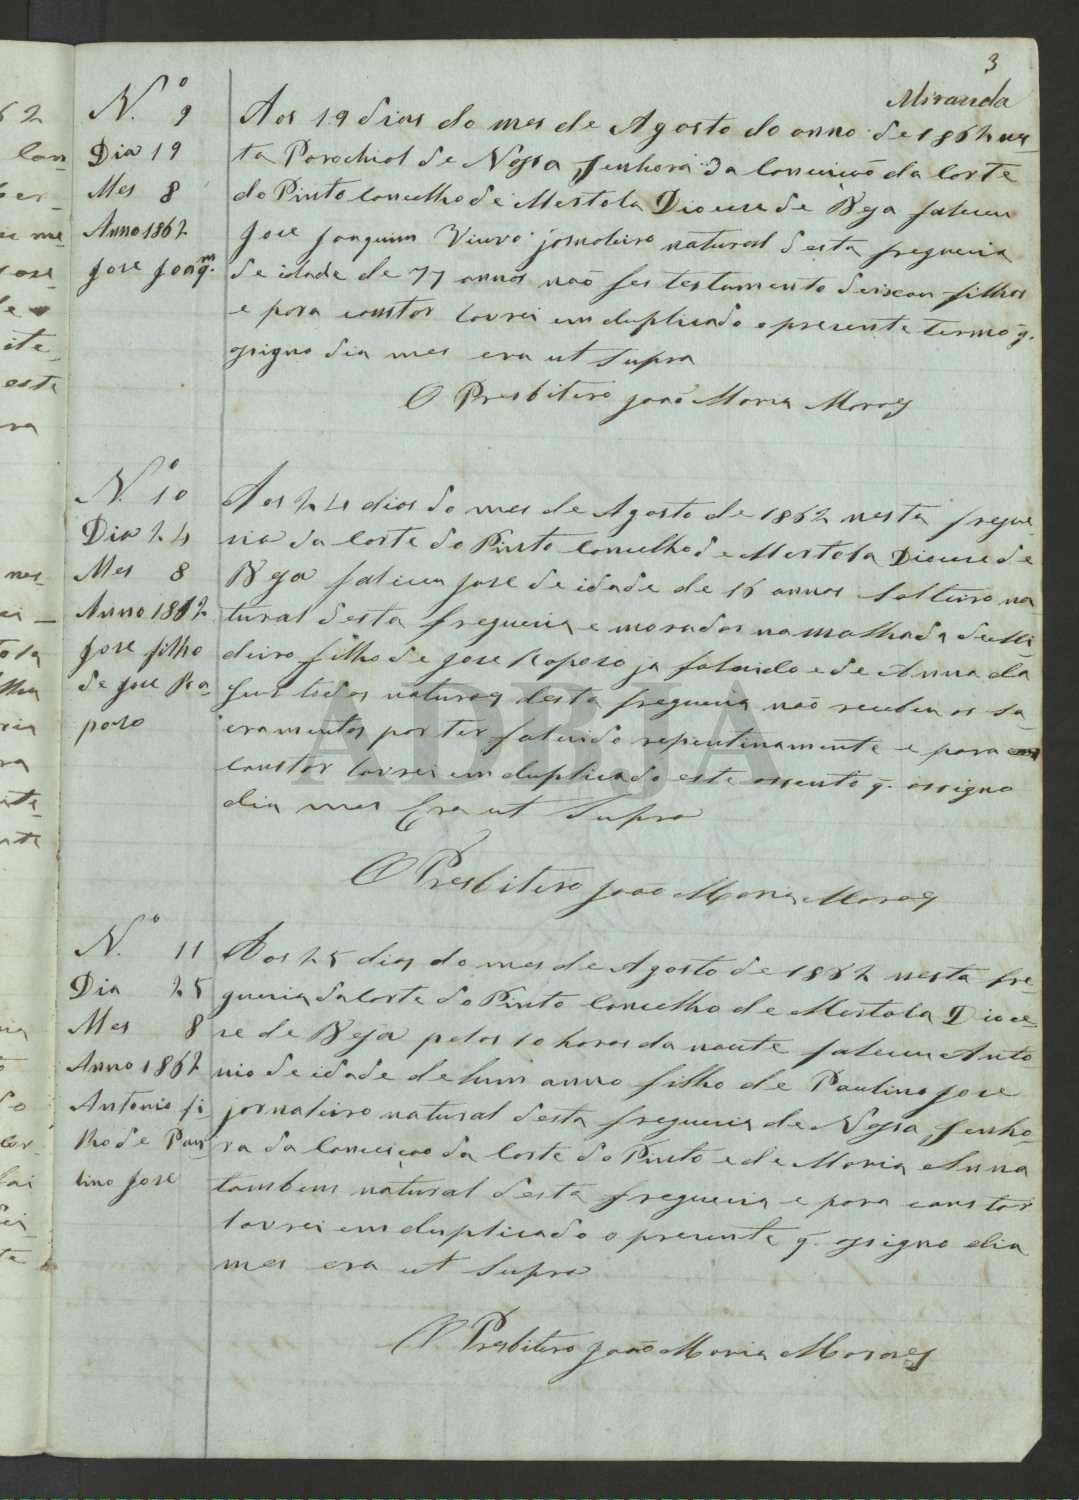 3
Miranda
N.º 9
Dia 19
Mes 8
Anno 1862
Jose Joaq.m
Aos 19 dias do mes de Agosto do anno de 1862 nes
ta Parochial de Nossa Senhora da Conceição da Corte
do Pinto Concelho de Mertola Diocese de Beja faleceu
Jose Joaquim Viuvo jornaleiro natural desta freguecia
de idade de 77 annos não fes testamento deixou filhos
e para constar lavrei em duplicado o presente termo q.
assigno dia mes era ut supra
O Presbitero João Maria Moraes
N.º 10
Dia 24
Mes 8
Anno 1862
Jose filho
de Jose Ra-
poso
Aos 24 dias do mes de Agosto de 1862 nesta fregue-
cia da Corte do Pinto Concelho de Mertola Diocese de
Beja faleceu Jose de idade de 16 annos Solteiro na
tural desta freguecia e morador na malhada
filho de Jose Raposo ja falecido e de Anna da
todos naturaes desta freguecia não recebeu os sa
cramentos por ter falecido repentinamente e para
constar lavrei em duplicado este assento q. assigno
dia mes Era ut Supra
O Presbitero João Maria Moraes
N.º 11
Dia 25
Mes 8
Anno 1862
Antonio fi
lho de Pau
lino Jose
Aos 25 dias do mes de Agosto de 1862 nesta fre-
guecia da Corte do Pinto Concelho de Mertola Dioce-
se de Beja pelas 10 horas da noute faleceu Anto
nio de idade de hum anno filho de Paulino Jose
jornaleiro natural desta freguecia de Nossa Senho-
ra da Conceição da Corte do Pinto e de Maria Anna
tambem natural desta freguecia e para constar
lavrei em duplicado o presente q. assigno dia
mes era ut supra
O Presbitero João Maria Moraes
ADBJA